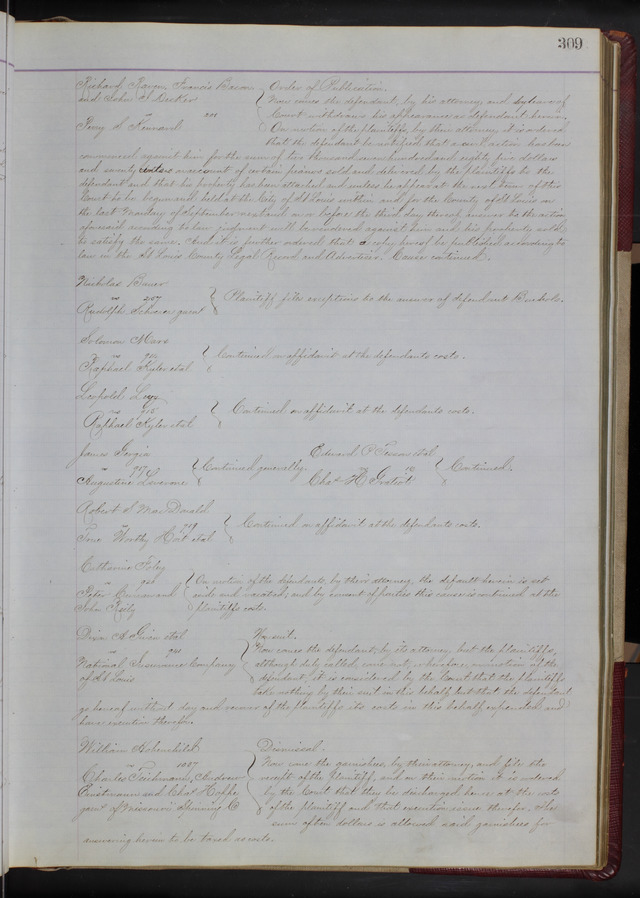 309
Richard Raven, Francis Bacon } Order of Publication.
and John S Decker } Now comes the defendant, by his attorney, and by leave of
vs } Court withdraws his appearance as defendant herein.
Perry S. } On motion of the plaintiffs, by their attorney, it is ordered
that the defendant be notified that a civil action has been
commenced against him for the sum of two thousand hundred and eighty five dollars
and seventy cents on account of certain pianos sold and delivered by the plaintiffs to the
defendant and that his property has been attached and unless he appear at the next term of this
Court to be begun and held at the City of St Louis within and for the County of St Louis on
the last Monday of September next and on or before the third day thereof answer to the action
aforesaid according to law judgment will be rendered against him and his property sold
to satisfy the same. And it is further ordered that a copy hereof be published according to
law in the St Louis County Legal Record and Advertiser. Cause continued.
Nicholas Bauer
vs } Plaintiff files exceptions to the answer of defendant
Rudolph
Solomon
vs } Continued on affidavit at the defendants costs.
Raphael Kyler et al
Leopold Levy
vs } Continued on affidavit at the defendants costs.
Raphael Kyler et al
James Edward P. et al
vs } Continued generally. vs } Continued.
Augustine Chas H
Robert S MacDonald
vs } Continued on affidavit at the defendants costs.
Worthy et al
Catharine
vs } On motion of the defendants, by their attorney, the default herein is set
Peter Curran and } aside and vacated, and by consent of parties this cause is continued at the
John Reily } plaintiffs costs.
A et al Nonsuit.
vs 941 } Now comes the defendant, by its attorney, but the plaintiffs,
National Insurance Company } although duly called, come not, wherefore, on motion of the
of St Louis } defendant, it is considered by the Court that the plaintiffs
take nothing by their suit in this behalf but that the defendant
go hence without day and recover of the plaintiffs its costs in this behalf expended and
have execution therefor.
William Dismissal.
vs 1027 } Now come the garnishees, by their attorney, and file the
Charles Teichmann, Andrew } receipt of the plaintiff, and on their motion it is ordered
and Chas Hoppe } by the Court that they be discharged hence at the costs
garn. of Missouri Spinning Co } of the plaintiff and that execution issue therefor. The
sum of ten dollars is allowed said garnishees for
answering herein to be taxed as costs.